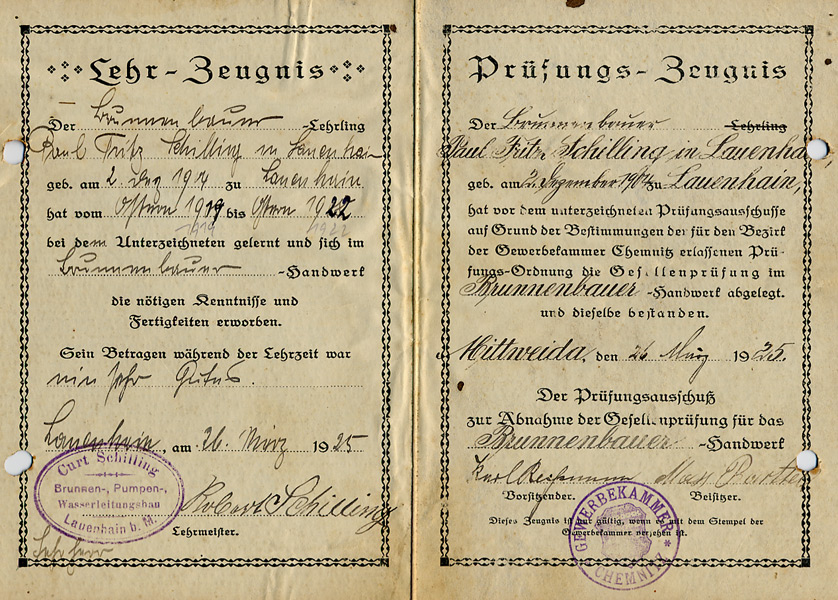 Lehr-Zeugnis
Der Brunnenbauer -Lehrling
Paul Fritz Schilling in Lauenhain
geb. am 2. Dez 1904 zu Lauenhain
hat vom Ostern 1919 bis Ostern 1922
1919 1922
bei dem Unterzeichneten gelernt und sich im
Brunnenbauer -Handwerk
die nötigen Kenntnisse und
Fertigkeiten erworben.
Sein Betragen während der Lehrzeit war
ein sehr Gutes.
Lauenhain, am 26. März 1925
Curt Schilling
Brunnen-, Pumpen-,
Wasserleitungsbau
Lauenhain b. M.
Robert Schilling
Lehrmeister.
Lehrherr
Prüfungs-Zeugnis
Der Brunnenbauer -Lehrling
Paul Fritz Schilling in Lauenhain,
geb. am 2. Dezember 1904 zu Lauenhain,
hat vor dem unterzeichneten Prüfungsausschusse
auf Grund der Bestimmungen der für den Bezirk
der Gewerbekammer Chemnitz erlassenen Prü-
fungs-Ordnung die Gesellenprüfung im
Brunnenbauer -Handwerk abgelegt.
und dieselbe bestanden.
Mittweida, den 26 März 1925.
Der Prüfungsausschuß
zur Abnahme der Gesellenprüfung für das
Brunnenbauer -Handwerk
Karl Max
Vorsitzender. Beisitzer.
Dieses Zeugnis ist nur gültig, wenn es mit dem Stempel der
Gewerbekammer versehen ist.
GEWERBEKAMMER * CHEMNITZ